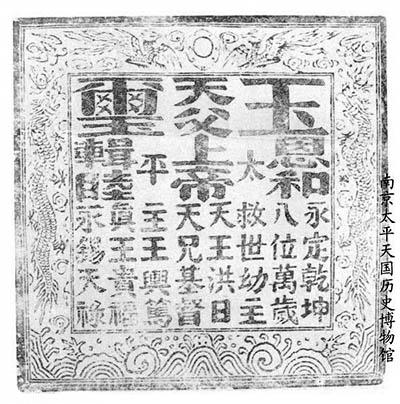 玉
恩和
永定乾坤
八位萬歲
太
救世幼主
天父上帝
天王洪日
天兄基督
璽
平
主王興篤
輯睦
眞王貴福
永錫天祿
南京太平天国历史博物馆